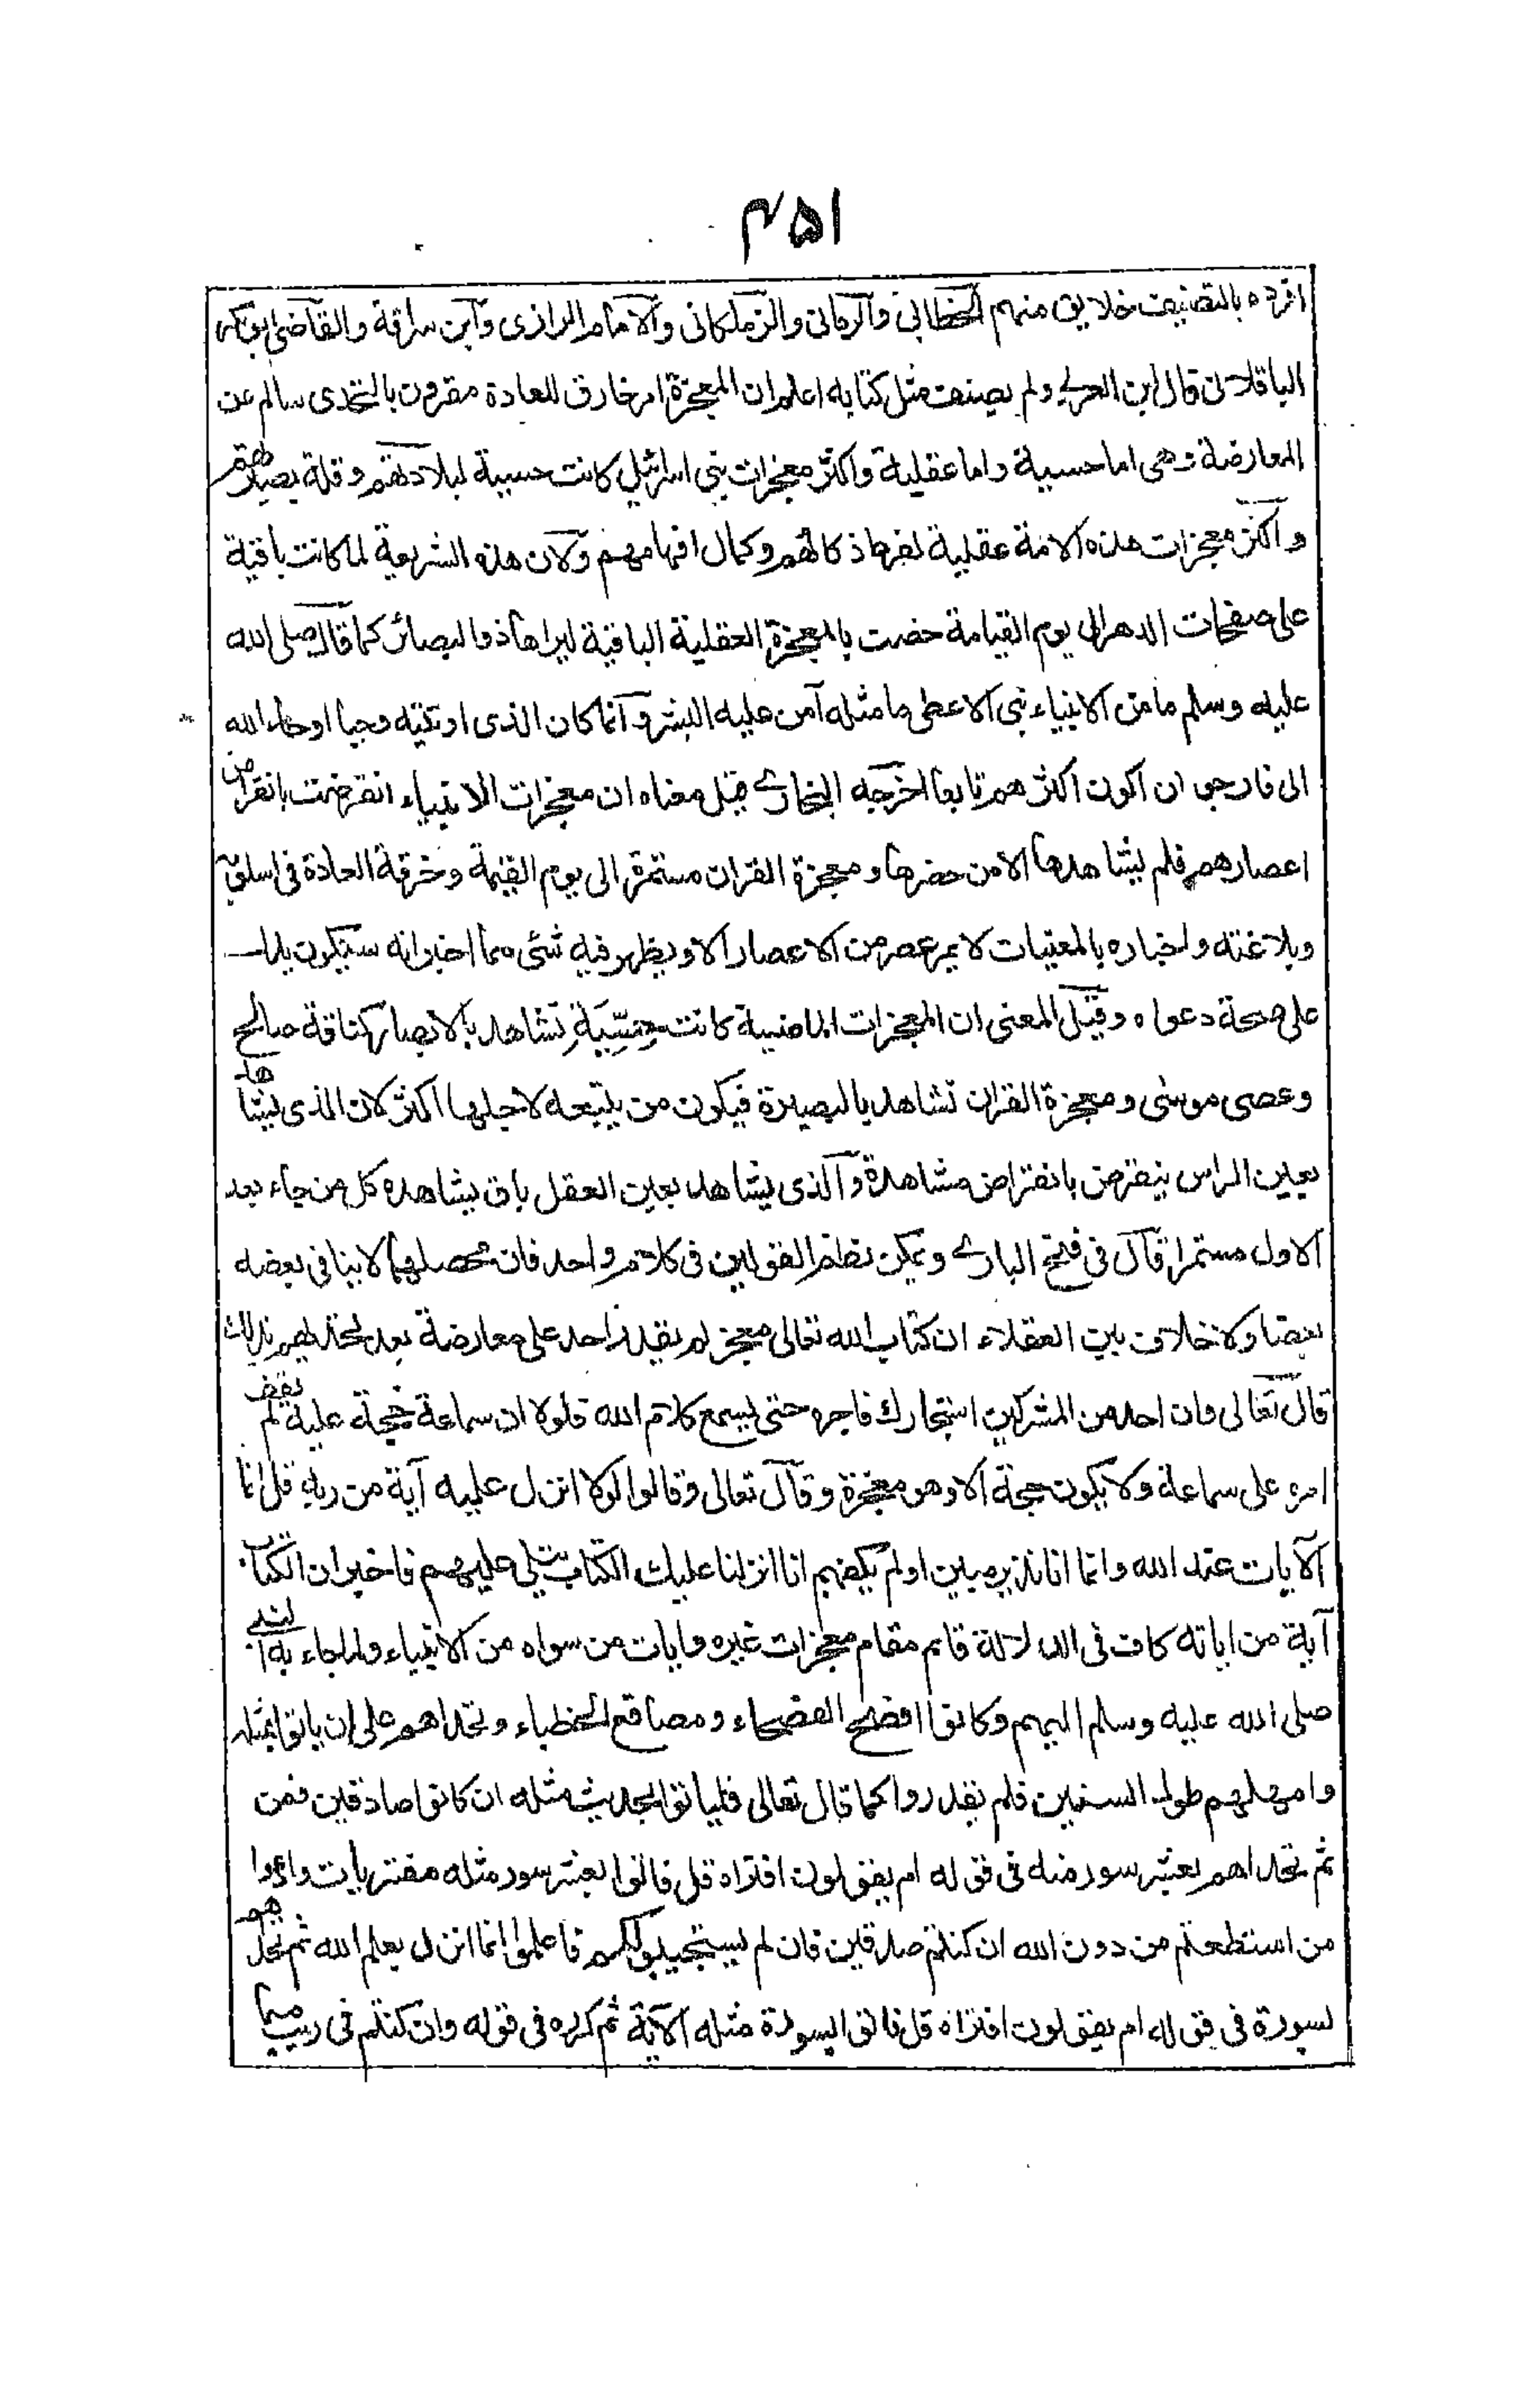 ۴۵۱
افرده بالتصنيف خلايق منهم الخطابي والرماني والزملكاني والامام الرازى وابن سراقة والقاضى ابوبكر
الباقلانى قال ابن العربي ولم يصنف مثل كتابه اعلم ان المعجزة امر خارق للعادة مقرون بالتحدى سالم عن
المعارضة وهى اما حسية واما عقلية واكثر معجزات بنى اسرائيل كانت حسية لبلادتهم وقلة بصيرتهم
واكثر معجزات هذه الامة عقلية لفرط ذكائهم وكمال افهامهم ولان هذه الشريعة لما كانت باقية
على صفحات الدهر الى يوم القيامة خصت بالمعجزة العقلية الباقية ليراها ذو البصائر كما قال صلى الله
عليه وسلم ما من الانبياء نبى الا اعطى ما مثله آمن عليه البشر وانما كان الذى اوتيته وحيا اوحاه الله
الى فارجو ان اكون اكثرهم تابعا اخرجه البخاري قيل معناه ان معجزات الانبياء انقرضت بانقراض
اعصارهم فلم يشاهدها الا من حضرها ومعجزة القران مستمرة الى يوم القيمة وخرقه العادة فى اسلوبه
وبلاغته واخباره بالمغيبات لا يمر عصر من الاعصار الا ويظهر فيه شئ مما اخبر انه سيكون يدل
على صحة دعواه وقيل المعنى ان المعجزات الماضية كانت حِسِّيَةِ تشاهد بالابصار كناقة صالح
وعصى موسى ومعجزة القران تشاهد بالبصيرة فيكون من يتبعه لاجلها اكثر لان الذى يشاهد
بعين الراس ينقرض بانقراض مشاهدة والذى يشاهد بعين العقل باق يشاهده كل من جاء بعد
الاول مستمرا قال فى فتح الباري ويمكن نظم القولين فى كلام واحد فان محصلهما لا ينافى بعضه
بعضا ولا خلاف بين العقلاء ان كتاب الله تعالى معجز لم يقدر احد على معارضة بعد تحديهم بذلك
قال تعالى وان احد من المشركين استجارك فاجره حتى يسمع كلام الله فلولا ان سماعة حجة عليه لم يقف
امره على سماعة ولا يكون حجة الا وهو معجزة وقال تعالى وقالوا لولا انزل عليه آية من ربه قل انما
الآيات عند الله وانما انا نذير مبين اولم يكفهم انا انزلنا عليك الكتاب يتلى عليهم فاخبر ان الكتاب
آية من اياته كاف فى الدلالة قايم مقام معجزات غيره وايات من سواه من الانبياء ولما جاء به النبي
صلى الله عليه وسلم اليهم وكانوا افصح الفصحاء ومصاقع الخطباء وتحداهم على ان ياتوا بمثله
وامهلهم طول السنين فلم يقدروا كما قال تعالى فلياتوا بحديث مثله ان كانوا صادقين فمن
ثم تحداهم بعشر سور منه فى قوله ام يقولون افتراه قل فاتوا بعشر سور مثله مفتريات وادعوا
من استطعتم من دون الله ان كنتم صادقين فان لم يستجيبوا لكم فاعلموا انما انزل بعلم الله ثم تحداهم
بسورة فى قوله ام يقولون افتراه قل فاتوا بسورة مثله الآية ثم كرره فى قوله وان كنتم فى ريب مما